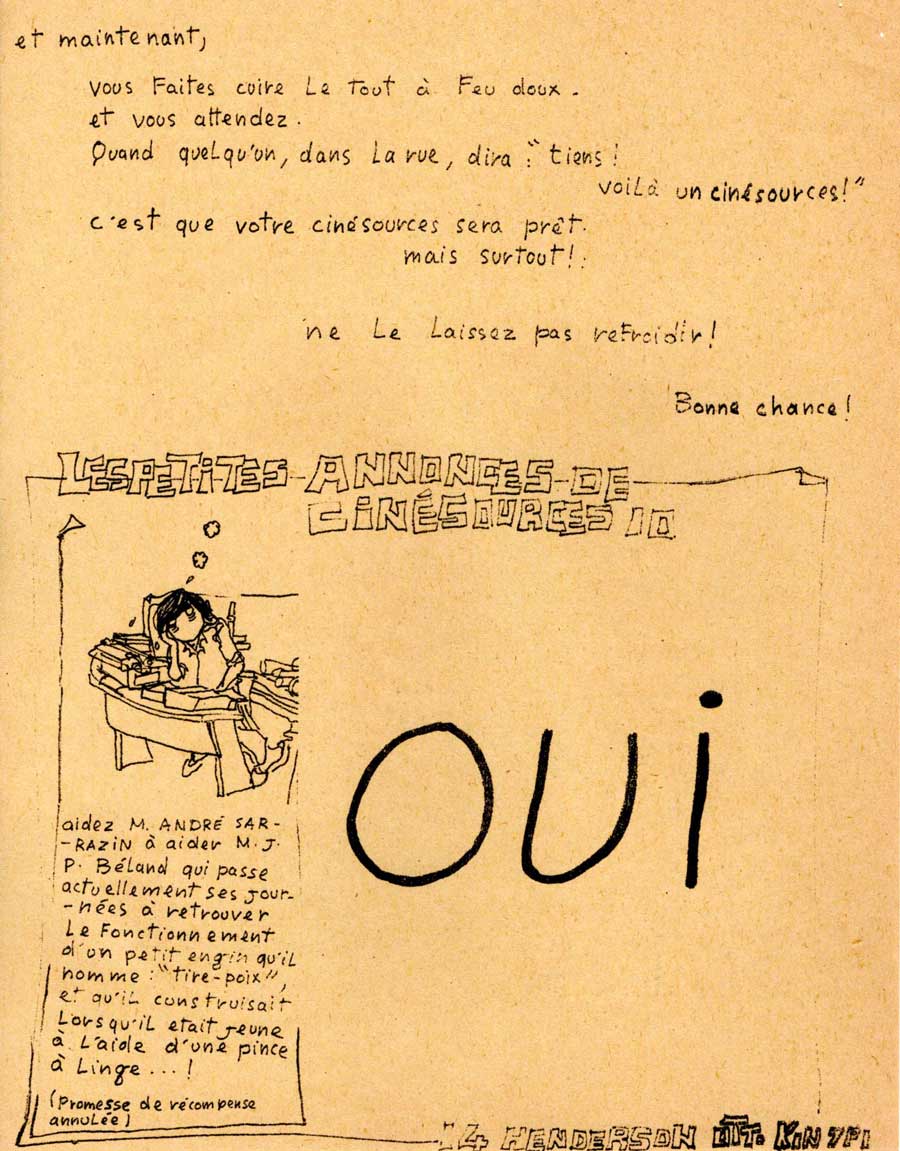 et maintenant,
vous Faites cuire Le Tout à Feu doux.
et vous attendez.
Quand quelqu'un, dans La rue, dira : "tiens!
voilà un cinésources!"
c'est que votre cinésources sera prêt.
mais surtout!:
ne Le Laissez pas refroidir!
Bonne chance!
LES PETITES ANNONCES DE
CINÉSOURCES 10
OUi
aidez M. ANDRÉ SAR-
-RAZIN à aider M. J.
P. Béland qui passe
actuellement ses jour-
-nées à retrouver
Le Fonctionnement
d'un petit engin qu'iL
nomme : "tire-poix",
et qu'iL construisait
Lorsqu'iL etait jeune
à L'aide d'une pince
à Linge...!
(Promesse de récompense
annuLée)
14 HENDERSON OTT. KIN 7P1